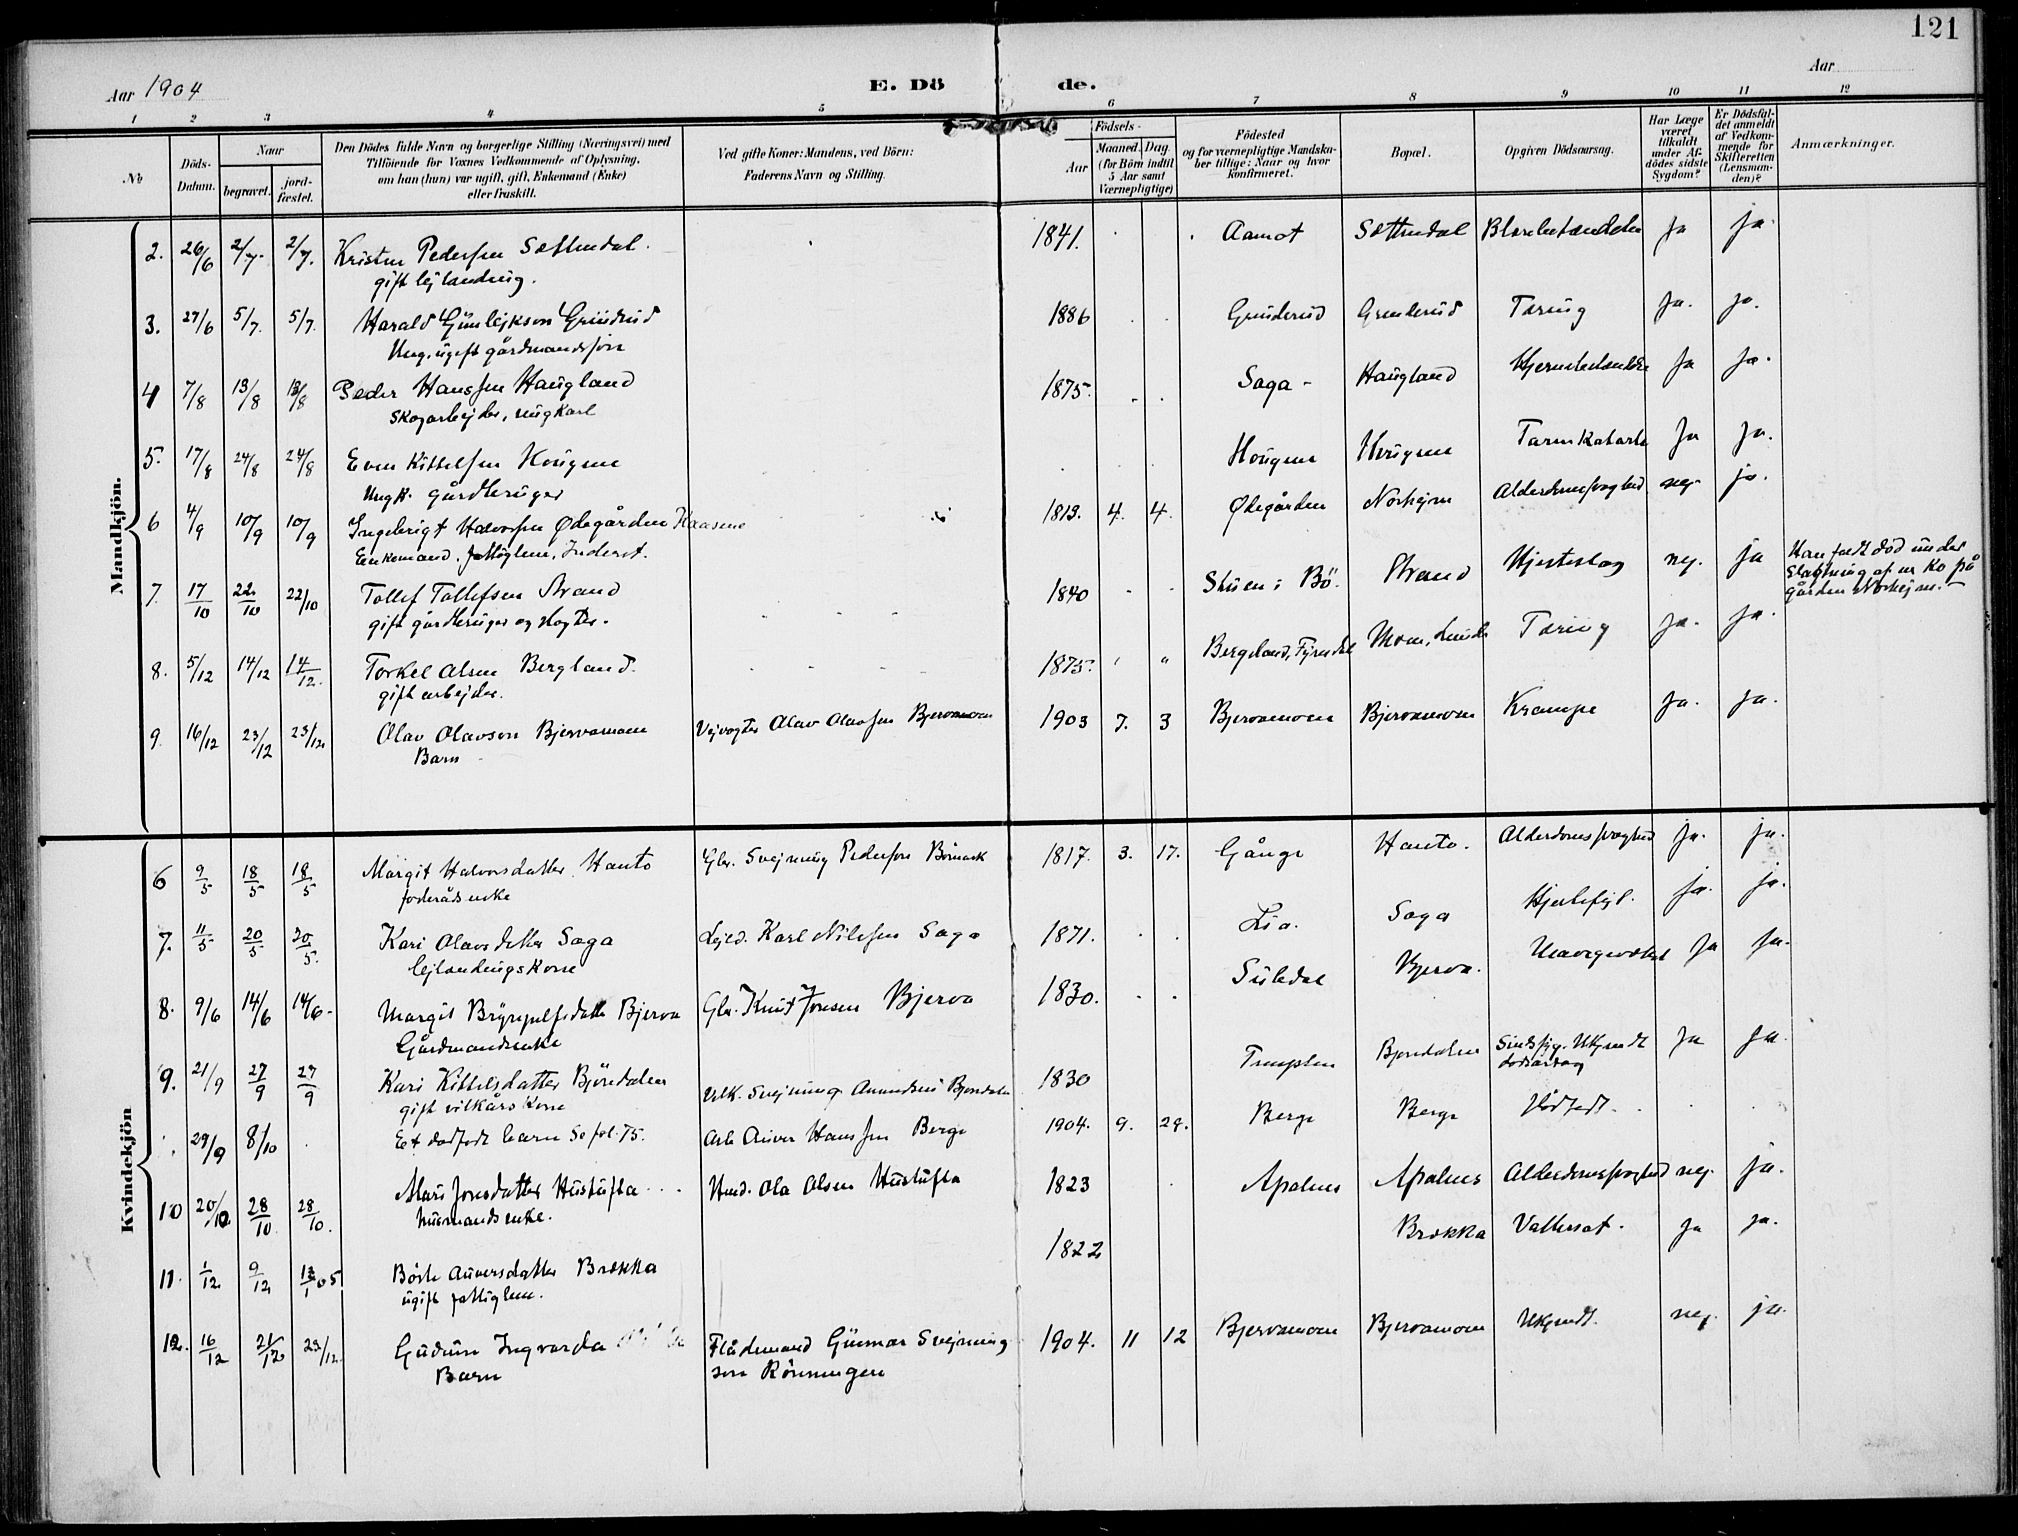 121
Aar 1904
E. Dö de.
Aar
1 2 3 4 5 6 7 8 9 10 11 12
No
Döds-Datum.
Naar
begravet.
jord-fæstet.
Den Dödes fulde Navn og borgerlige Stilling (Næringsvei) med
Tilföiende for Voxnes Vedkommende af Oplysning,
om han (hun) var ugift, gift, Enkemand (Enke)
eller fraskilt.
Ved gifte Koner: Mandens, ved Börn:
Faderens Navn og Stilling.
Födsels-
Aar
Maaned. Dag.
(for Börn indtil
5 Aar samt
Værnepligtige)
Födested
og for værnepligtige Mandska-
ber tillige: Naar og hvor
konfirmeret.
Bopæl.
Opgiven Dödsaarsag.
Har Læge
været
tilkaldt
under Af-
dödes sidste
Sygdom?
Er Dödsfal-
det anmeldt
af Vedkom-
mende for
Skifteretten
(Lensman-
den)?
Anmærkninger.
Mandkjön.
2. 26/6 2/7. 2/7. Kristen Pedersen Sættendal. 1841. Aamot Sættendal Ja ja.
gift lejlænding.
3. 27/6 5/7. 5/7. Harald Gunlejkson Grinderud 1886 Grinderud Grinderud Tæring ja. ja.
Ung. ugift gårdmandssøn
4 7/8 13/8 13/8 Peder Hanssen Haugland 1875. Saga - Haugland Ja ja.
Skogarbejder, ungkarl
5. 17/8 24/8 24/8 Even Kittelsen Hougene Hougene Hougene Tarmkatarh Ja Ja.
Ungk. gårdbruger
6 4/9 10/9 10/9 Ingebrigt Halvorsen Ødegården Kaasene 1813. 4. 4. Ødegården Norhejm Alderdomssvaghed nej. ja.
Enkemand. fattiglem. Inderst.
7. 17/10 22/10 22/10 Tollef Tollefsen Strand 1840 Stuen i Bö. Strand Hjerteslag nej. ja Han faldt død under
gift gårdbruger og slagter. Slagtning af en Ko på
gården Norhejm.
8. 5/12 14/12 14/12. Torkel Olsen Bergland. 1875. Bergland, Fyresdal Moen, Lunde Tæring ja. ja.
gift arbejder.
9. 16/12 23/12 23/12 Olav Olavson Bjervamoen Vejvogter Olav Olavsen Bjervamoen 1903 7. 3 Bjervamoen Bjervamoen Krampe ja. ja.
Barn
Kvindekjön
6 9/5 18/5 18/5 Margit Halvorsdatter Hanto Gbr. Svejnung Pedersen 1817. 3. 17. Gånge Hanto. Alderdomssvaghed ja. ja.
foderådsenke
7. 11/5 20/5 20/5. Kari Olavsdatter Saga Lejed. Karl Nilssen Saga 1871. Lia. Saga Hjertefejl. ja. ja.
lejlændingskone
8. 9/6 14/6 14/6 Margit Brynjulfsdatter Bjerva Gbr. Knut Jonsen Bjerva 1830. Suledal Bjerva. Ja ja.
Gårdmandsenke
9. 21/9 27/9 27/9 Kari Kittelsdatter Bjöndalen Vilk. Svejnung Amundsen Bjöndalen 1830 Bjøndalen Sindssyg. Ukjendt Ja ja.
gift vilkårskone dødsårsag
29/9 8/10 Et dødfødt barn Se fol. 75. Arb Auver Hanssen Berge 1904. 9. 29. Berge Berge Dødfødt.
10 20/10 28/10 28/10. Mari Jonsdatter Hustufta Husd. Ola Olsen Hustufta 1823 Apalnes Apalnes Alderdomssvaghed nej. ja.
husmandsenke.
11. 1/12 9/12 13/1 05 Börte Auversdatter Brekka 1822 Brekka Vattersot. ja ja.
ugift fattiglem.
12. 16/12 21/12 23/12. Gudrun Ingvarda Flådemand Gunnar Svejnung 1904. 11 12 Bjervamoen Bjervamoen Ukjendt. nej. ja.
Barn sen Rönningen